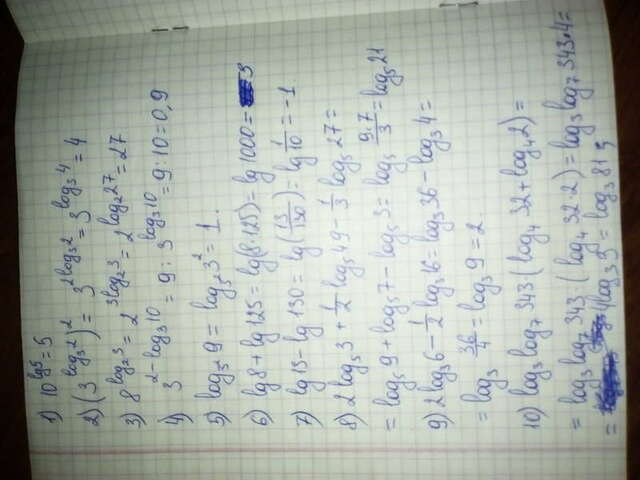 1) 10^lg5 = 5
2) (3^log₃2)² = 3^2log₃2 = 3^log₃4 = 4
3) 8^log₂3 = 2^3log₂3 = 2^log₂27 = 27
4) 3^2-log₃10 = 9 : 3^log₃10 = 9 : 10 = 0,9
5) log₃ 9 = log₃ 3² = 1.
6) lg 8 + lg 125 = lg(8·125) = lg 1000 = 3
7) lg 13 - lg 130 = lg(13/130) = lg 1/10 = -1
8) 2 log₅ 3 + 1/2 log₅ 49 - 1/3 log₅ 27 =
= log₅ 9 + log₅ 7 - log₅ 3 = log₅ 9·7/3 = log₅ 21
9) 2 log₃ 6 - 1/2 log₃ 16 = log₃ 36 - log₃ 4 =
= log₃ 36/4 = log₃ 9 = 2
10) log₃ log₇ 343 (log₄ 32 + log₄ 2) =
= log₃ log₇ 343 (log₄ 32·2) = log₃ log₇ 343·4 =